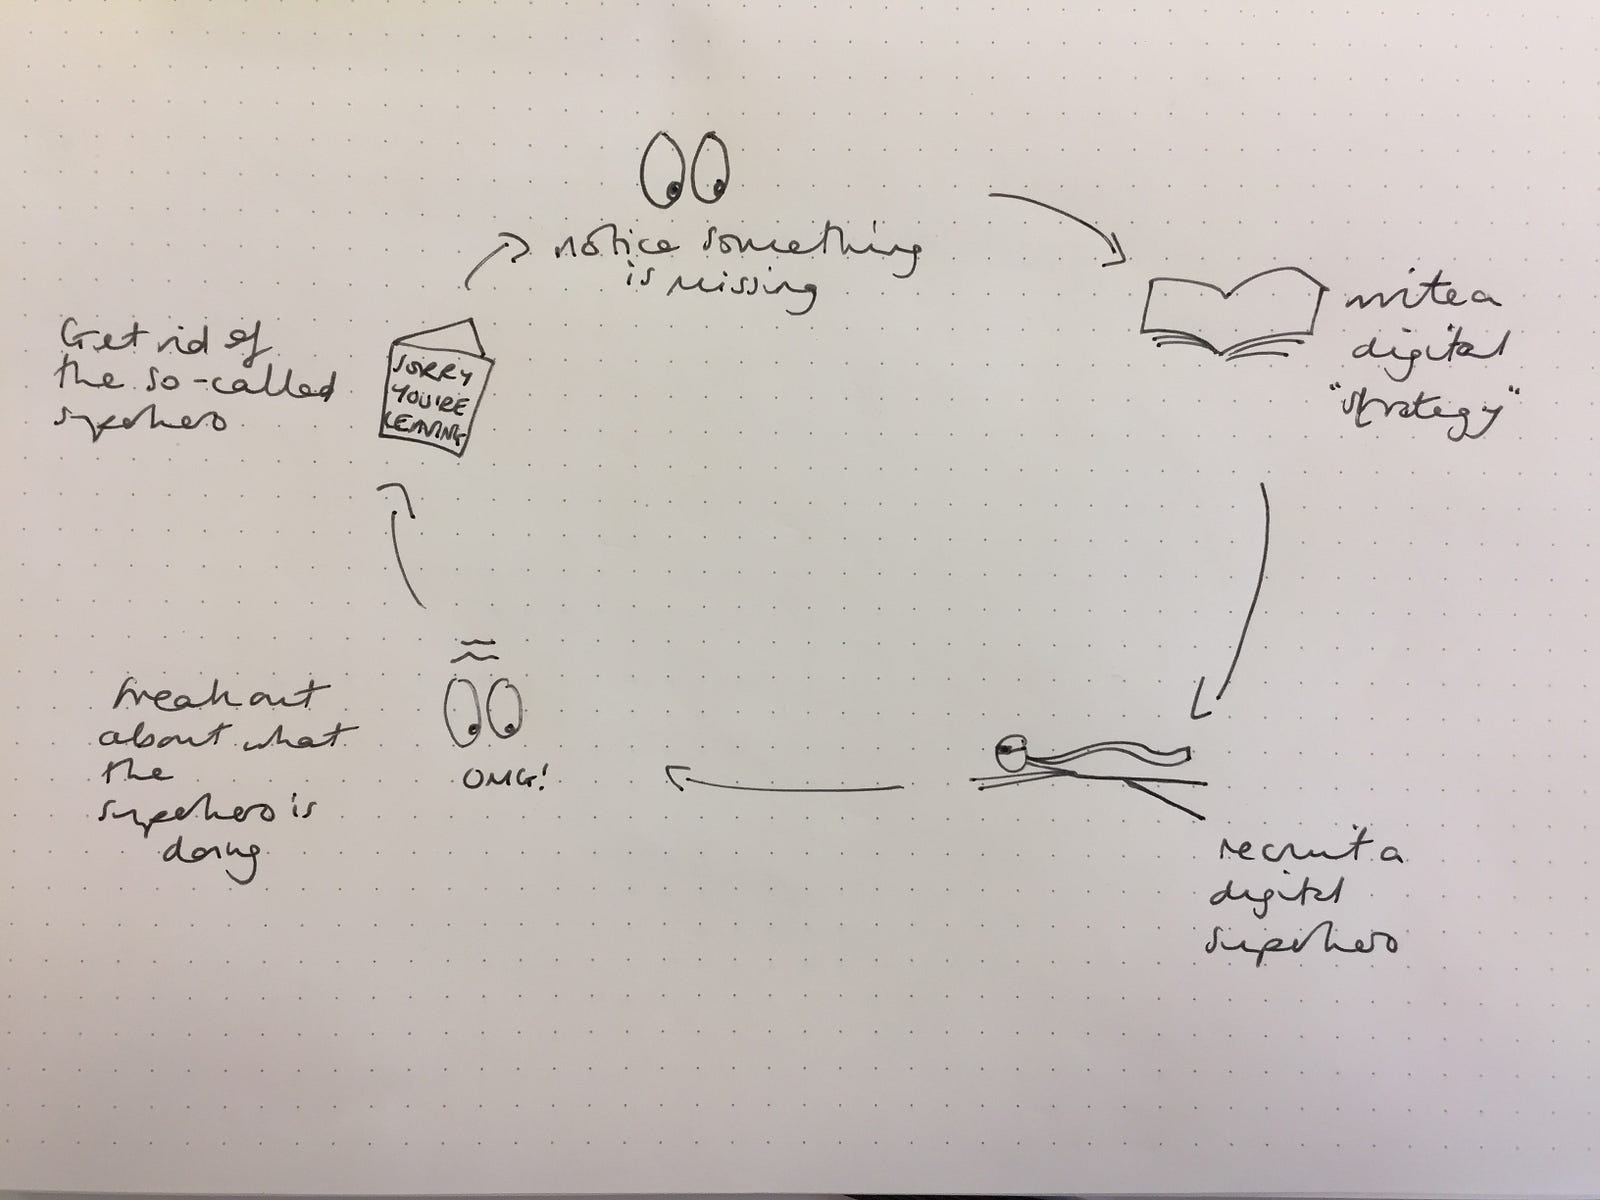 notice something
is missing
write a
digital
"strategy"
recruit a
digital
superhero
freak out
about what
the
superhero is
doing
OMG!
Get rid of
the so-called
superhero
SORRY
YOU'RE
LEAVING